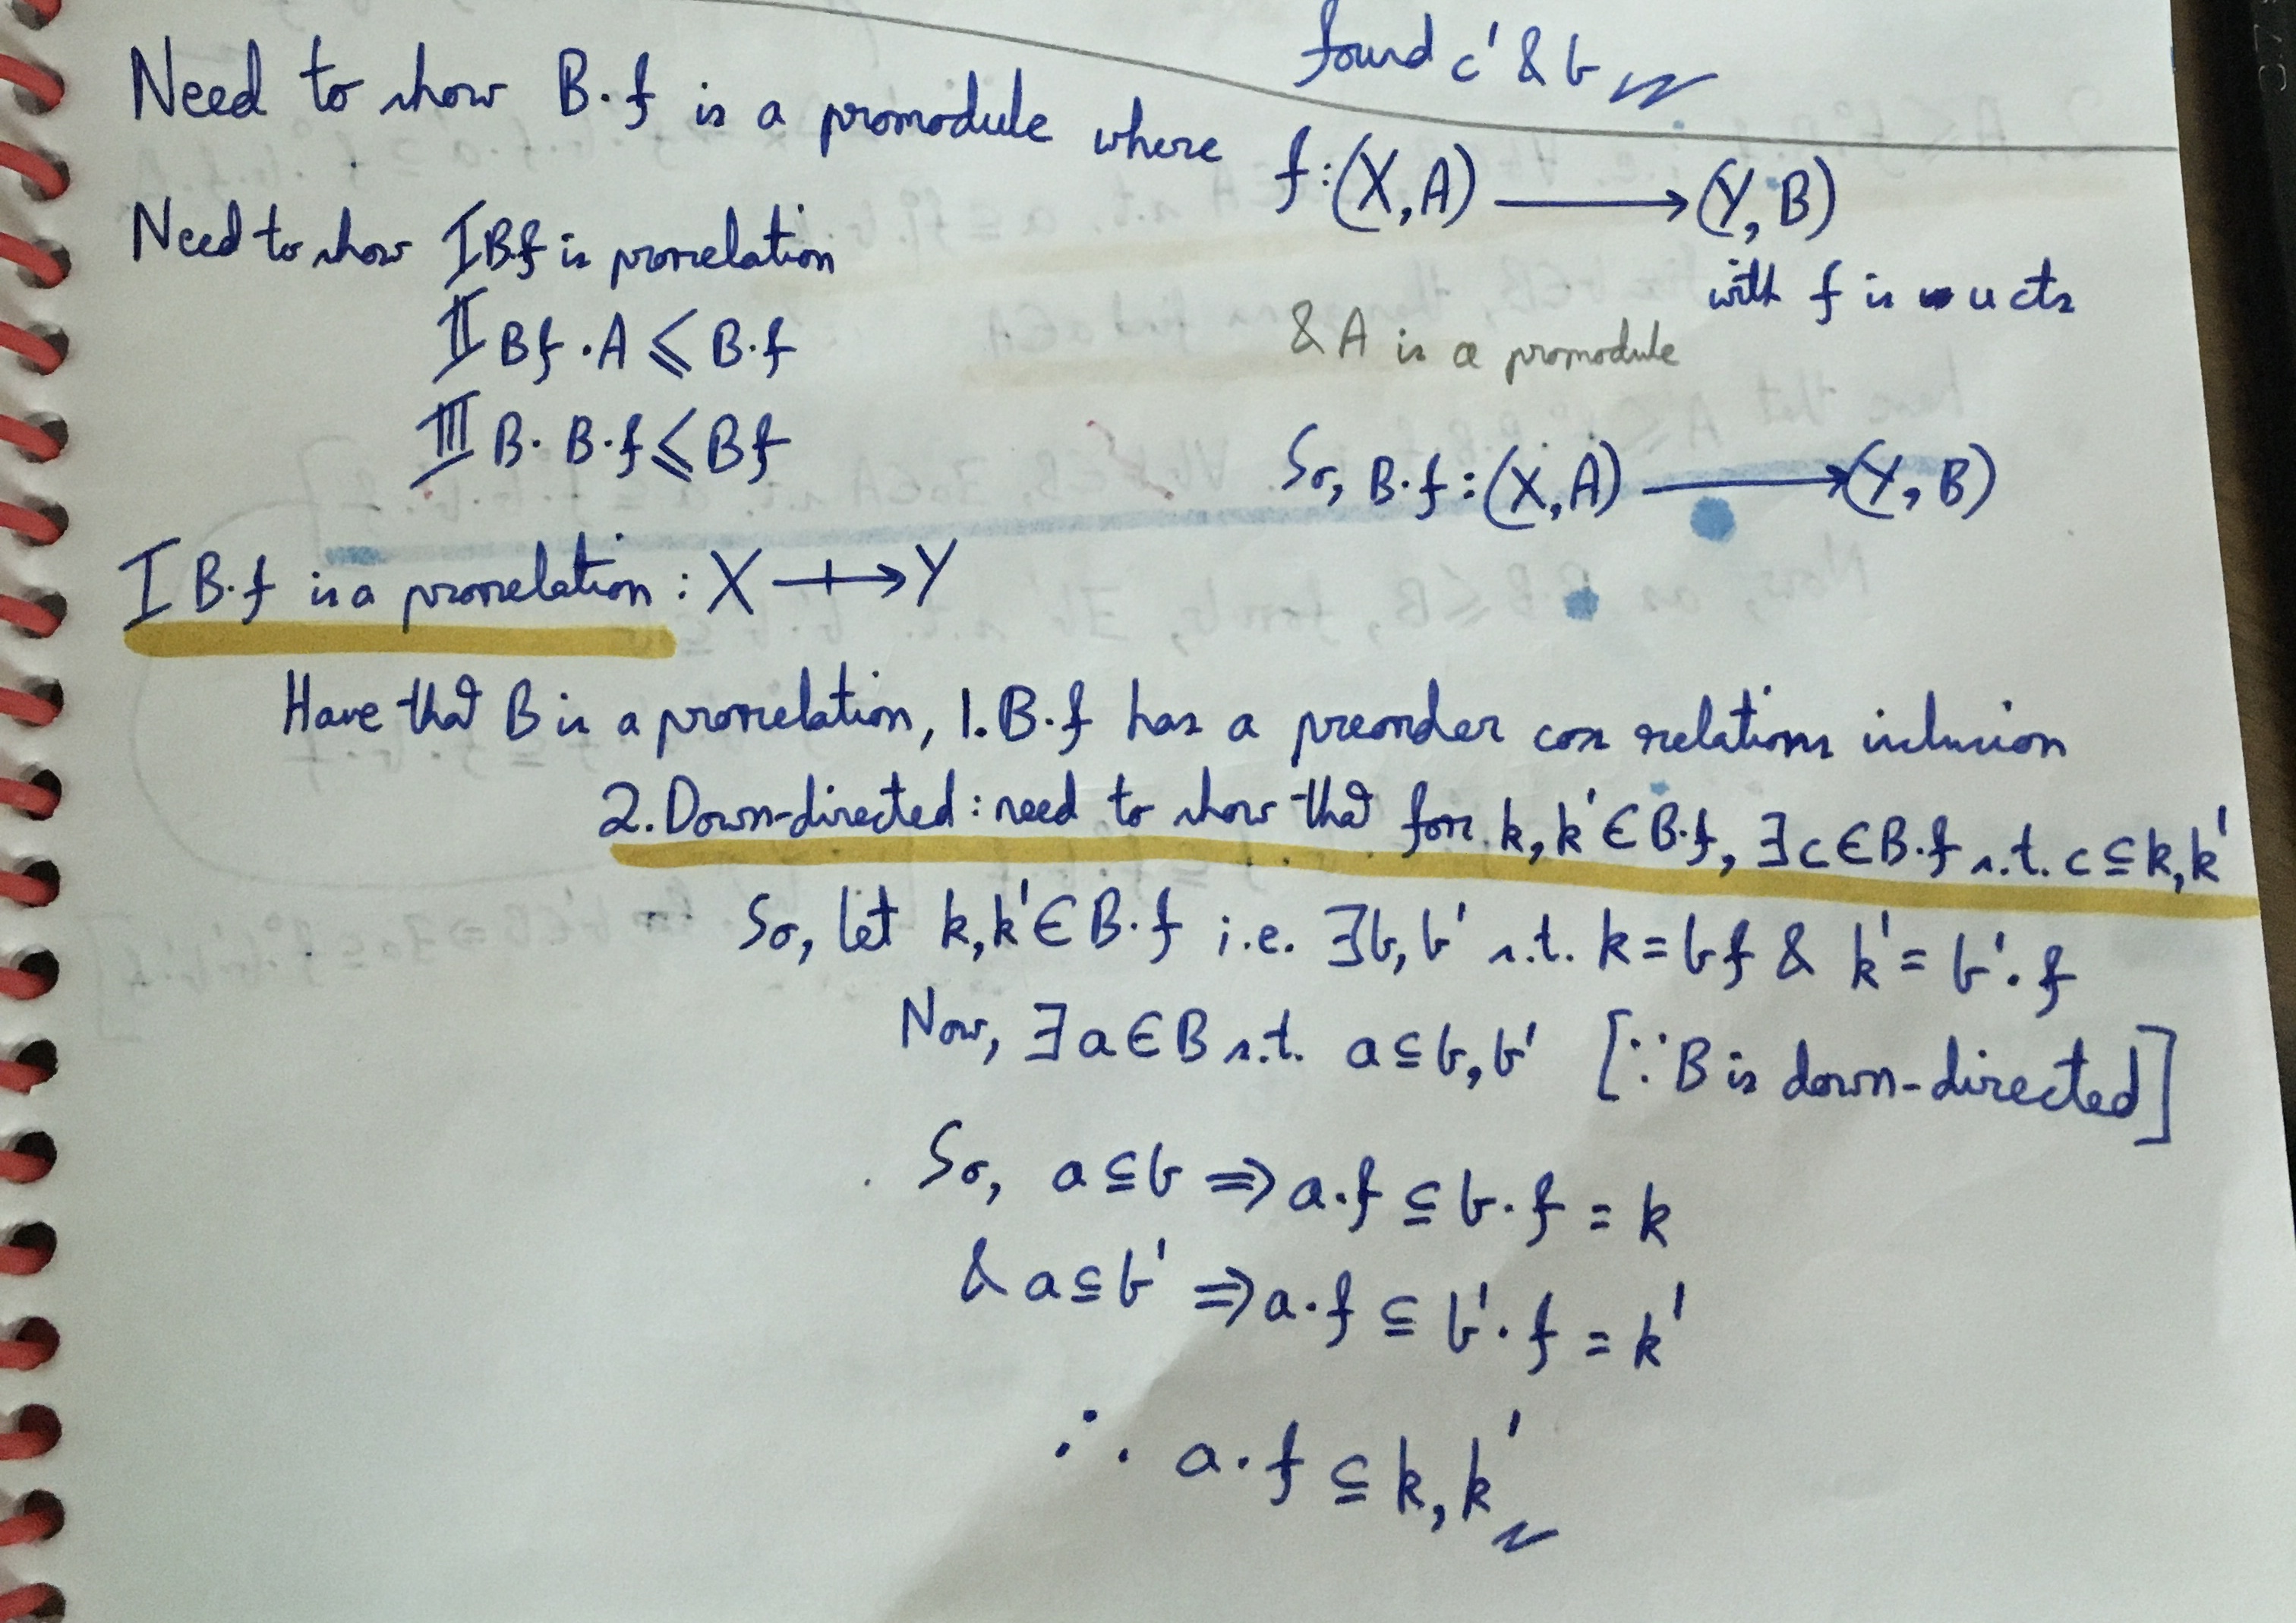 found c' & b
Need to show B·f is a promodule where f:(X,A) ⟶ (Y,B)
with f is u cts
Need to show I Bf is prorelation
II Bf·A ⩽ B·f
& A is a promodule
III B· B·f ⩽ Bf
So, B·f : (X,A) ⟶ (Y,B)
I B·f is a prorelation : X ⇸ Y
Have that B is a prorelation, 1. B·f has a preorder coz relations inclusion
2. Down-directed : need to show that for k, k' ∈ B·f, ∃ c ∈ B·f s.t. c ⊆ k, k'
So, let k, k' ∈ B·f i.e. ∃ b, b' s.t. k = bf & k' = b'·f
Now, ∃ a ∈ B s.t. a ⊆ b, b' [∵ B is down-directed]
So, a ⊆ b ⇒ a·f ⊆ b·f = k
& a ⊆ b' ⇒ a·f ⊆ b'·f = k'
∴ a·f ⊆ k, k'